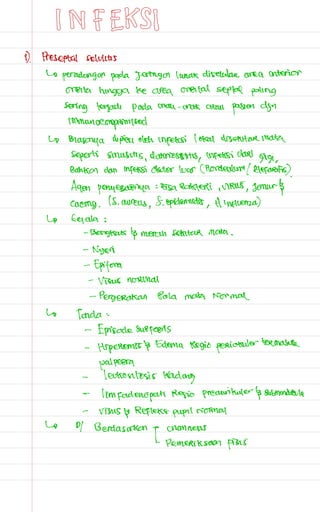 INFEKSI
1) Preseptal selulitis
↳ peradangan pada Jaringan lunak disekitar area anterior
orbita hingga ke area orbital septal paling
sering terjadi pada anak-anak atau pasien dgn
immunocompromised
↳ Biasanya dipicu oleh infeksi lokal disekitar mata
seperti sinusitis, infeksi dari gigi,
Bahkan dari infeksi luar (Hordeolum / Blefaritis)
Agen penyebabnya : Bisa Bakteri, virus, Jamur &
Cacing. (S. aureus, S. epidermidis, H. influenza)
↳ Gejala :
- Bengkak & merah sekitar mata.
- Nyeri
-
- Visus normal
- Pergerakan Bola mata Normal
↳ Tanda :
-
- Hiperemis & Edema Regio periokular termasuk
palpebra
-
- limfadenopati Regio preaurikuler & submandibula
- visus & Refleks pupil normal
↳ D/ Berdasarkan - anamnesis
- Pemeriksaan fisis